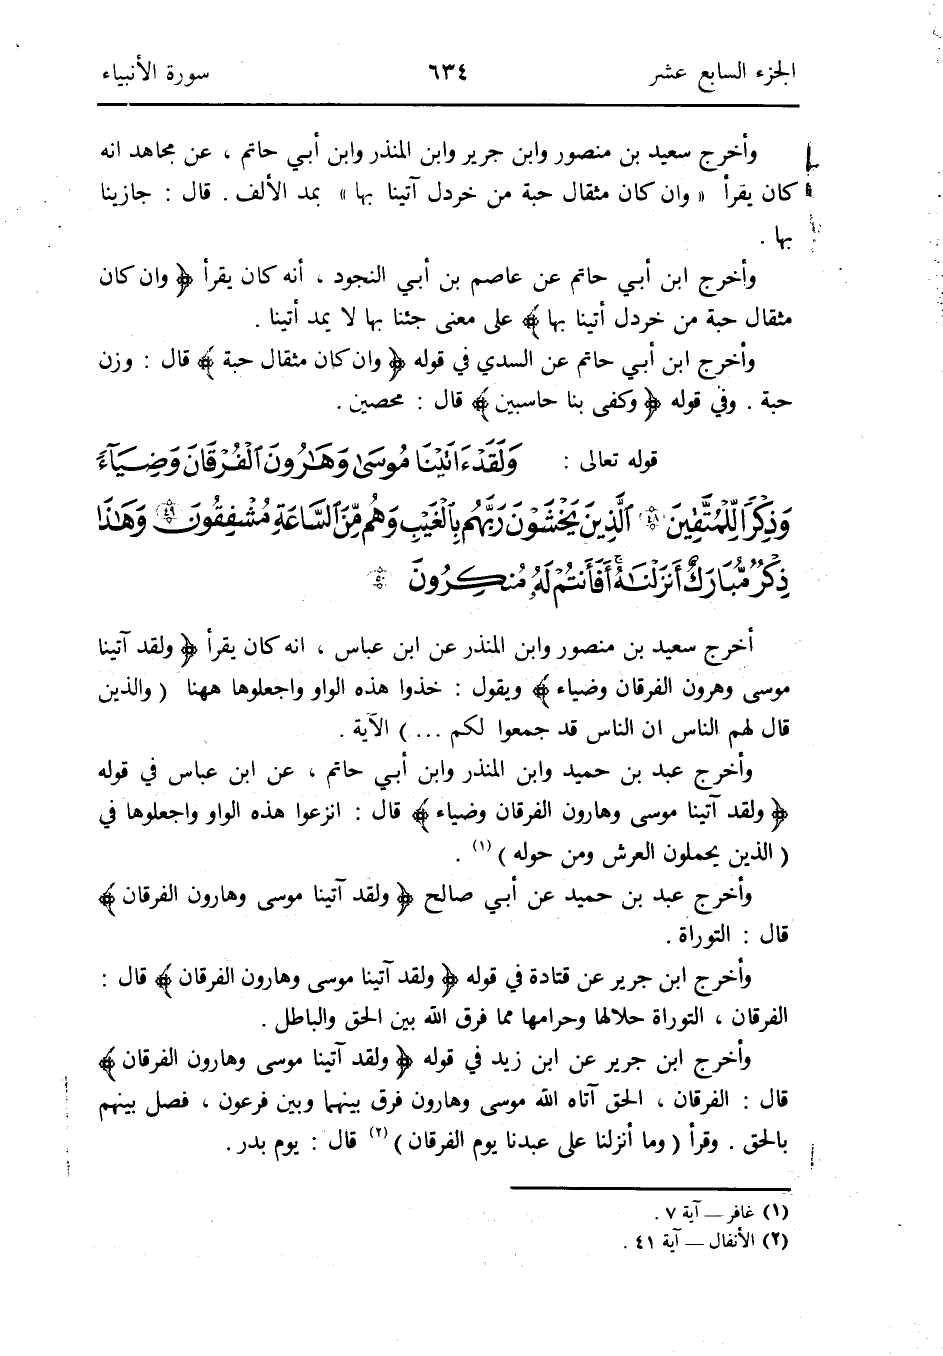 الجزء السابع عشر ٦٣٤ سورة الأنبياء
وأخرج سعيد بن منصور وابن جرير وابن المنذر وابن أبي حاتم ، عن مجاهد انه
كان يقرأ « وان كان مثقال حبة من خردل آتينا بها » بمد الألف . قال : جازينا
بها .
وأخرج ابن أبي حاتم عن عاصم بن أبي النجود ، أنه كان يقرأ ﴿ وان كان
مثقال حبة من خردل أتينا بها ﴾ على معنى جئنا بها لا يمد أتينا .
وأخرج ابن أبي حاتم عن السدي في قوله ﴿ وان كان مثقال حبة ﴾ قال : وزن
حبة . وفي قوله ﴿ وكفى بنا حاسبين ﴾ قال : محصين .
قوله تعالى : وَلَقَدْ ءَاتَيْنَا مُوسَىٰ وَهَٰرُونَ ٱلْفُرْقَانَ وَضِيَآءً
وَذِكْرًا لِّلْمُتَّقِينَ ٤٨ ٱلَّذِينَ يَخْشَوْنَ رَبَّهُم بِٱلْغَيْبِ وَهُم مِّنَ ٱلسَّاعَةِ مُشْفِقُونَ ٤٩ وَهَٰذَا
ذِكْرٌ مُّبَارَكٌ أَنزَلْنَٰهُ أَفَأَنتُمْ لَهُۥ مُنكِرُونَ ٥٠
أخرج سعيد بن منصور وابن المنذر عن ابن عباس ، انه كان يقرأ ﴿ ولقد آتينا
موسى وهرون الفرقان وضياء ﴾ ويقول : خذوا هذه الواو واجعلوها ههنا ( والذين
قال لهم الناس ان الناس قد جمعوا لكم ... ) الآية .
وأخرج عبد بن حميد وابن المنذر وابن أبي حاتم ، عن ابن عباس في قوله
﴿ ولقد آتينا موسى وهارون الفرقان وضياء ﴾ قال : انزعوا هذه الواو واجعلوها في
( الذين يحملون العرش ومن حوله ) (١) .
وأخرج عبد بن حميد عن أبي صالح ﴿ ولقد آتينا موسى وهارون الفرقان ﴾
قال : التوراة .
وأخرج ابن جرير عن قتادة في قوله ﴿ ولقد آتينا موسى وهارون الفرقان ﴾ قال :
الفرقان ، التوراة حلالها وحرامها مما فرق الله بين الحق والباطل .
وأخرج ابن جرير عن ابن زيد في قوله ﴿ ولقد آتينا موسى وهارون الفرقان ﴾
قال : الفرقان ، الحق آتاه الله موسى وهارون فرق بينهما وبين فرعون ، فصل بينهم
بالحق . وقرأ ( وما أنزلنا على عبدنا يوم الفرقان ) (٢) قال : يوم بدر .
(١) غافر ــ آية ٧ .
(٢) الأنفال ــ آية ٤١ .